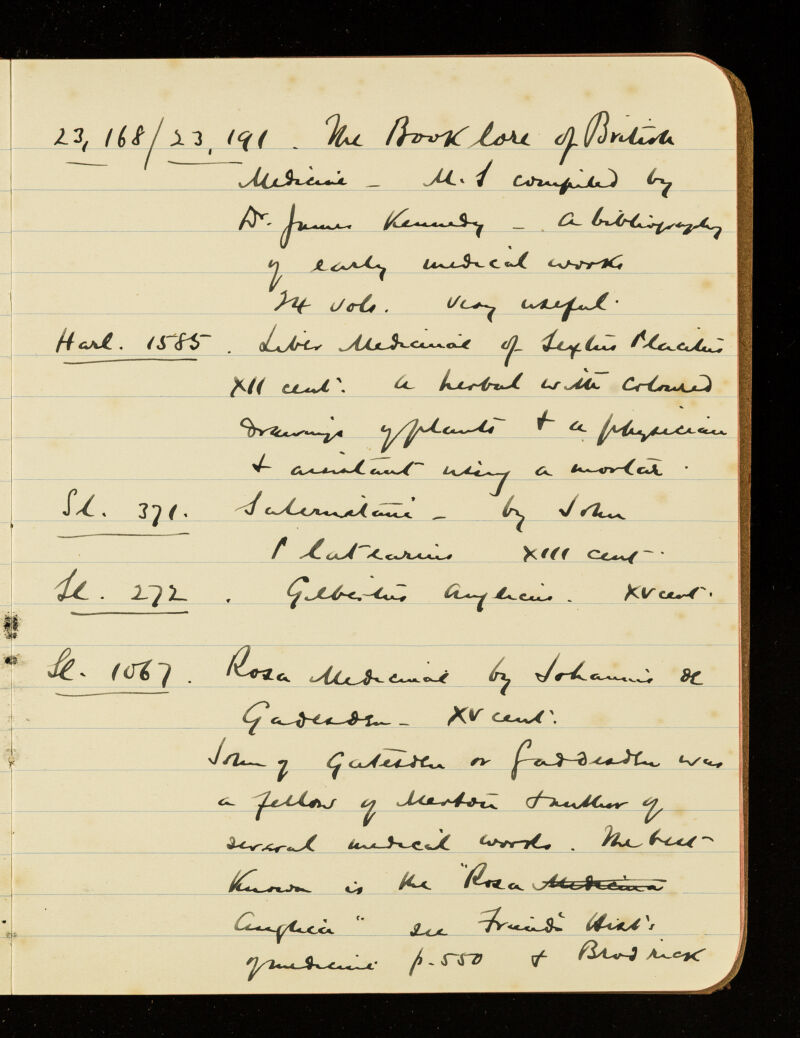 23,168/23,191. The Book lore of British
Medicine - M.S compiled by
Dr. James Kennedy - A bibliography
of early medical works
24 vols. very useful.
Harl. 1585. Liber Medicinae of Sextus Placitus
XII cent: A herbal with coloured
drawings of plants & a physician
& assistant using a mortar.
Sl. 371. Salernitani - by John
Platearius XIII cent.
Sl. 272. Gilbertus Anglicus. XV cent.
Sl. 1067. Rosa Medicinae by Johannis de
Gadesden - XV cent:
John of Gatesden or Gaddesden was
a fellow of Merton & author of
several medical works. The best
known is the "Rosa Medicina
Anglica" see Friend's Hist:
of medicine p. 550 & Brodrick